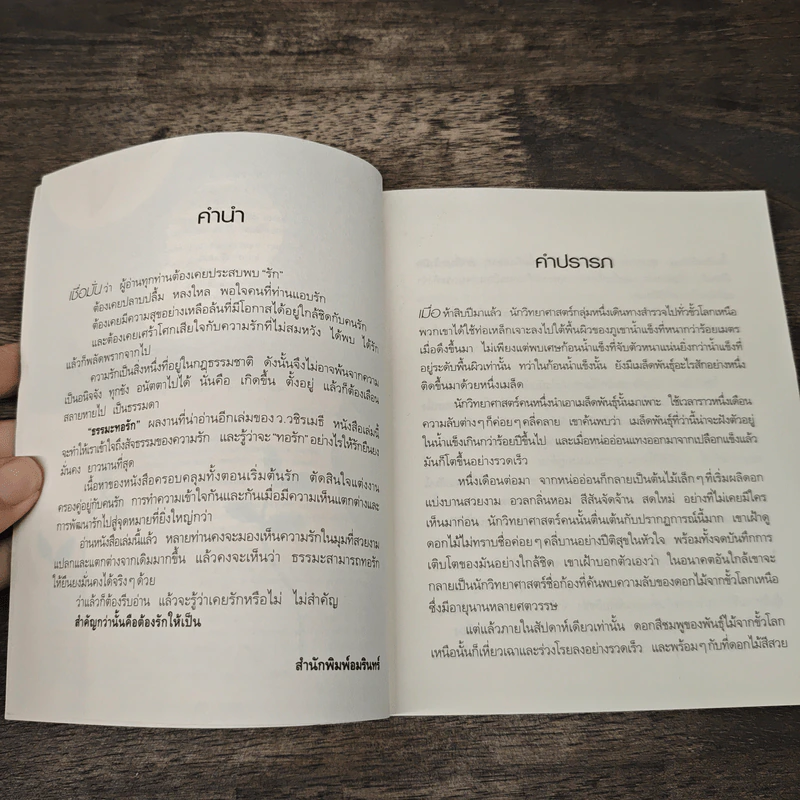 คำนำ
เชื่อมั่นว่า ผู้อ่านทุกท่านต้องเคยประสบพบ "รัก"
ต้องเคยปลาบปลื้ม หลงใหล พอใจคนที่ท่านแอบรัก
ต้องเคยมีความสุขอย่างเหลือล้นที่มีโอกาสได้อยู่ใกล้ชิดกับคนรัก
และต้องเคยเศร้าโศกเสียใจกับความรักที่ไม่สมหวัง ได้พบ ได้รัก
แล้วก็พลัดพรากจากไป
ความรักเป็นสิ่งหนึ่งที่อยู่ในกฎธรรมชาติ ดังนั้นจึงไม่อาจพ้นจากความ
เป็นอนิจจัง ทุกขัง อนัตตาไปได้ นั่นคือ เกิดขึ้น ตั้งอยู่ แล้วก็ต้องเลือน
สลายหายไป เป็นธรรมดา
"ธรรมะทอรัก" ผลงานที่น่าอ่านอีกเล่มของ ว.วชิรเมธี หนังสือเล่มนี้
จะทำให้เราเข้าใจถึงสัจธรรมของความรัก และรู้ว่าจะ "ทอรัก" อย่างไรให้รักยืนยง
มั่นคง ยาวนานที่สุด
เนื้อหาของหนังสือครอบคลุมทั้งตอนเริ่มต้นรัก ตัดสินใจแต่งงาน
ครองคู่อยู่กับคนรัก การทำความเข้าใจกันและกันเมื่อมีความเห็นแตกต่างและ
การพัฒนารักไปสู่จุดหมายที่ยิ่งใหญ่กว่า
อ่านหนังสือเล่มนี้แล้ว หลายท่านคงจะมองเห็นความรักในมุมที่สวยงาม
แปลกและแตกต่างจากเดิมมากขึ้น แล้วคงจะเห็นว่า ธรรมะสามารถทอรัก
ให้ยืนยงมั่นคงได้จริงๆ ด้วย
ว่าแล้วก็ต้องรีบอ่าน แล้วจะรู้ว่าเคยรักหรือไม่ ไม่สำคัญ
สำคัญกว่านั้นคือต้องรักให้เป็น
สำนักพิมพ์อมรินทร์
คำปรารภ
เมื่อห้าสิบปีมาแล้ว นักวิทยาศาสตร์กลุ่มหนึ่งเดินทางสำรวจไปทั่วขั้วโลกเหนือ
พวกเขาได้ใช้ท่อเหล็กเจาะลงไปใต้พื้นผิวของภูเขาน้ำแข็งที่หนากว่าร้อยเมตร
เมื่อดึงขึ้นมา ไม่เพียงแต่พบเศษก้อนน้ำแข็งที่จับตัวหนาแน่นยิ่งกว่าน้ำแข็งที่
อยู่ระดับพื้นผิวเท่านั้น ทว่าในก้อนน้ำแข็งนั้น ยังมีเมล็ดพันธุ์อะไรสักอย่างหนึ่ง
ติดขึ้นมาด้วยหนึ่งเมล็ด
นักวิทยาศาสตร์คนหนึ่งนำเอาเมล็ดพันธุ์นั้นมาเพาะ ใช้เวลาราวหนึ่งเดือน
ความลับต่างๆ ก็ค่อยๆ คลี่คลาย เขาค้นพบว่า เมล็ดพันธุ์ที่ว่านี้น่าจะฝังตัวอยู่
ในน้ำแข็งเกินกว่าร้อยปีขึ้นไป และเมื่อหน่ออ่อนแทงออกมาจากเปลือกแข็งแล้ว
มันก็โตขึ้นอย่างรวดเร็ว
หนึ่งเดือนต่อมา จากหน่ออ่อนก็กลายเป็นต้นไม้เล็กๆ ที่เริ่มผลิดอก
แบ่งบานสวยงาม อวลกลิ่นหอม สีสันจัดจ้าน สดใหม่ อย่างที่ไม่เคยมีใคร
เห็นมาก่อน นักวิทยาศาสตร์คนนั้นตื่นเต้นกับปรากฏการณ์นี้มาก เขาเฝ้าดู
ดอกไม้ไม่ทราบชื่อค่อยๆ คลี่บานอย่างปีติสุขในหัวใจ พร้อมทั้งจดบันทึกการ
เติบโตของมันอย่างใกล้ชิด เขาเฝ้าบอกตัวเองว่า ในอนาคตอันใกล้เขาจะ
กลายเป็นนักวิทยาศาสตร์ชื่อก้องที่ค้นพบความลับของดอกไม้จากขั้วโลกเหนือ
ซึ่งมีอายุนานหลายศตวรรษ
แต่แล้วภายในสัปดาห์เดียวเท่านั้น ดอกสีชมพูของพันธุ์ไม้จากขั้วโลก
เหนือนั้นก็เหี่ยวเฉาและร่วงโรยลงอย่างรวดเร็ว และพร้อมๆ กับที่ดอกไม้สีสวย